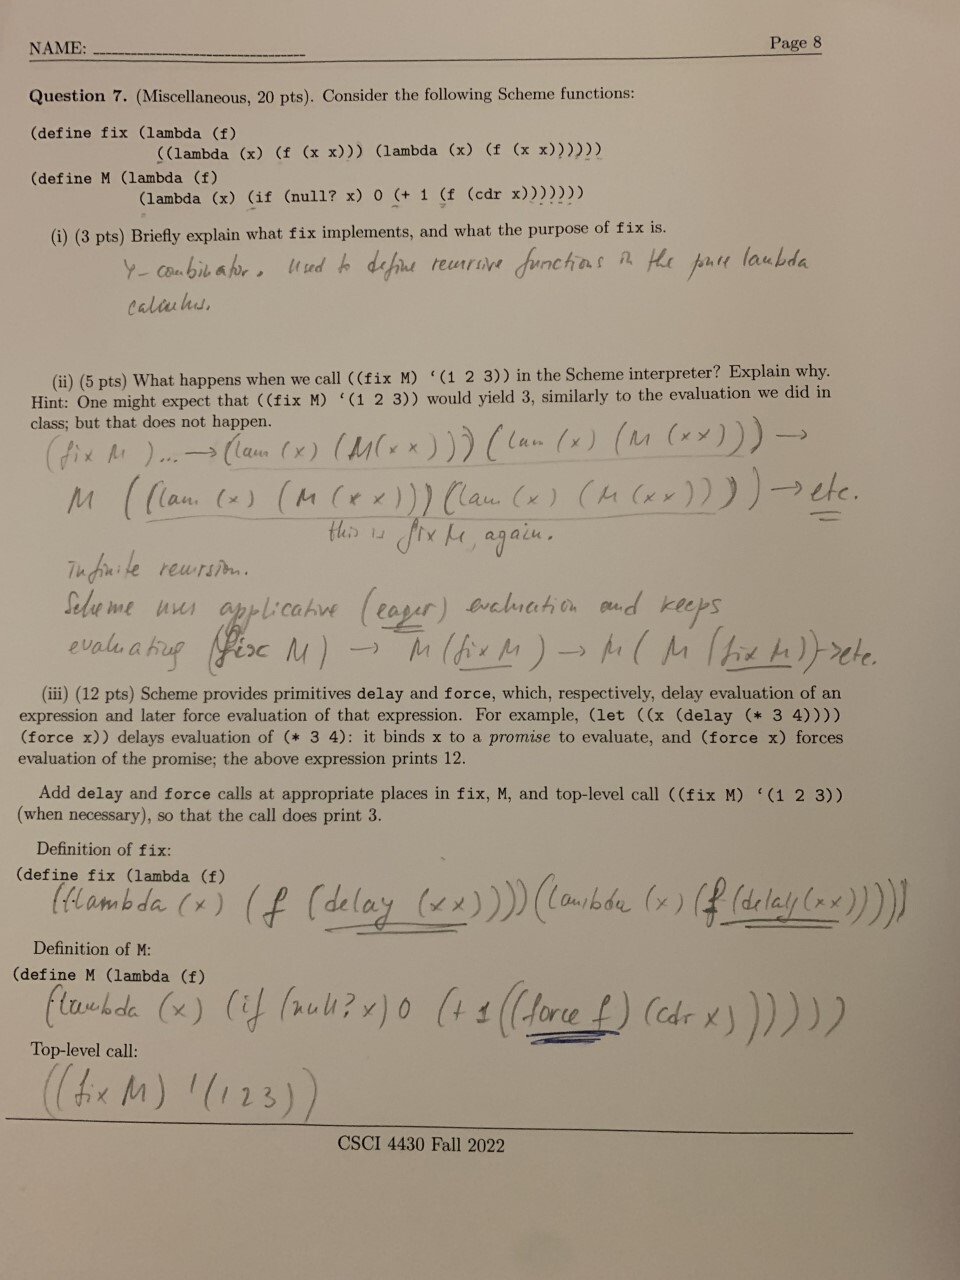 NAME: Page 8
Question 7. (Miscellaneous, 20 pts). Consider the following Scheme functions:
(define fix (lambda (f)
((lambda (x) (f (x x))) (lambda (x) (f (x x))))))
(define M (lambda (f)
(lambda (x) (if (null? x) 0 (+ 1 (f (cdr x)))))))
(i) (3 pts) Briefly explain what fix implements, and what the purpose of fix is.
Y-combinator. Used to define recursive functions in the pure lambda
calculus.
(ii) (5 pts) What happens when we call ((fix M) ‘(1 2 3)) in the Scheme interpreter? Explain why.
Hint: One might expect that ((fix M) ‘(1 2 3)) would yield 3, similarly to the evaluation we did in
class; but that does not happen.
(fix M)... → (lam (x) (M(x x))) (lam (x) (M (x x))) →
M ((lam. (x) (M (x x))) (lam (x) (M (x x)))) → etc.
this is fix M, again.
Infinite recursion.
Scheme uses applicative (eager) evaluation and keeps
evaluating (fix M) → M (fix M) → M( M (fix M)) → etc.
(iii) (12 pts) Scheme provides primitives delay and force, which, respectively, delay evaluation of an
expression and later force evaluation of that expression. For example, (let ((x (delay (* 3 4))))
(force x)) delays evaluation of (* 3 4): it binds x to a promise to evaluate, and (force x) forces
evaluation of the promise; the above expression prints 12.
Add delay and force calls at appropriate places in fix, M, and top-level call ((fix M) ‘(1 2 3))
(when necessary), so that the call does print 3.
Definition of fix:
(define fix (lambda (f)
((lambda (x) (f (delay (x x)))) (lambda (x) (f (delay (x x))))))
Definition of M:
(define M (lambda (f)
(lambda (x) (if (null? x) 0 (+ 1 ((force f) (cdr x)))))))
Top-level call:
((fix M) '(1 2 3))
CSCI 4430 Fall 2022